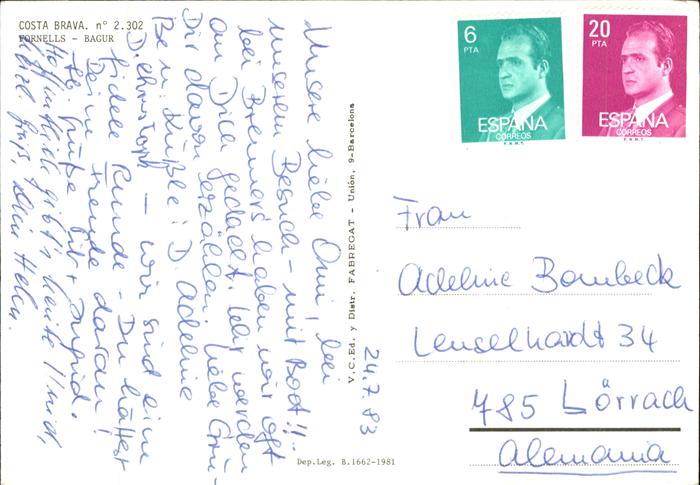 COSTA BRAVA. n° 2.302
FORNELLS - BAGUR
Unsere liebe Omi, bei
unserem Besuch - mit Boot!! -
bei Brenners haben wir oft
an Dich gedacht. Wir werden
Dir davon erzählen. Liebe Grü-
ße u. Küßle! D. Adeline
D. Christoph — wir sind eine
fidele Runde - Du hättest
Deine Freude daran!
Hz. Grüße
Hoffentlich gibt's heute Wind,
Herzl. Grüße, Dein
V.C.Ed. y Distr. FABREGAT - Unión, 9-Barcelona
Dep.Leg. B.1662-1981
24.7.83
6
PTA
ESPAÑA
CORREOS
F.N.M.T.
20
PTA
ESPAÑA
CORREOS
F.N.M.T.
Frau
Adeline Bombeck
Leuselhardt 34
785 Lörrach
Alemania